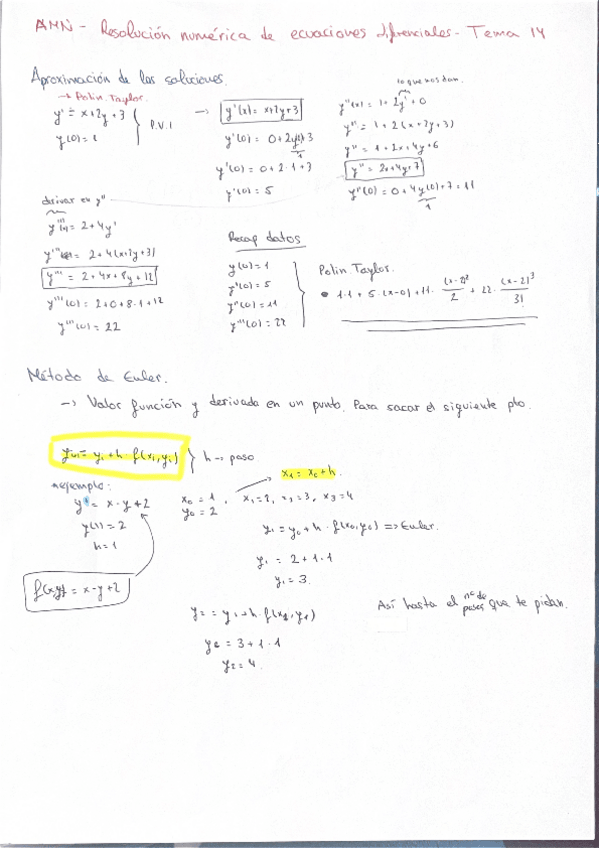 AMN - Resolución numérica de ecuaciones diferenciales - Tema 14
Aproximación de las soluciones.
→ Polin. Taylor.
y' = x+2y+3
y(0) = 1
P.V.I
→ y'(x) = x+2y+3
y'(0) = 0+2y(0)+3
1
y'(0) = 0+2·1+3
y'(0) = 5
lo que nos dan.
y''(x) = 1+2y'+0
y'' = 1+2(x+2y+3)
y'' = 1+2x+4y+6
y'' = 2x+4y+7
y''(0) = 0+4y(0)+7 = 11
1
derivar en y''
y'''(x) = 2+4y'
y''' = 2+4(x+2y+3)
y''' = 2+4x+8y+12
y'''(0) = 2+0+8·1+12
y'''(0) = 22
Recap datos
y(0) = 1
y'(0) = 5
y''(0) = 11
y'''(0) = 22
Polin. Taylor.
• 1·1 + 5·(x-0) + 11· (x-2)²/2 + 22· (x-2)³/3!
Método de Euler.
→ Valor función y derivada en un punto. Para sacar el siguiente pto.
= yi + h · f(xi, yi) } h → paso.
ejemplo:
y' = x-y+2
y(1) = 2
h = 1
f(x,y) = x-y+2
x0 = 1, x1=2, x2=3, x3=4
y0 = 2
x1 = x0 + h.
y1 = y0 + h · f(x0, y0) => Euler.
y1 = 2+1·1
y1 = 3.
y2 = y1 + h · f(x1, y1)
y2 = 3+1·1
y2 = 4.
Así hasta el nº de pasos que te pidan.